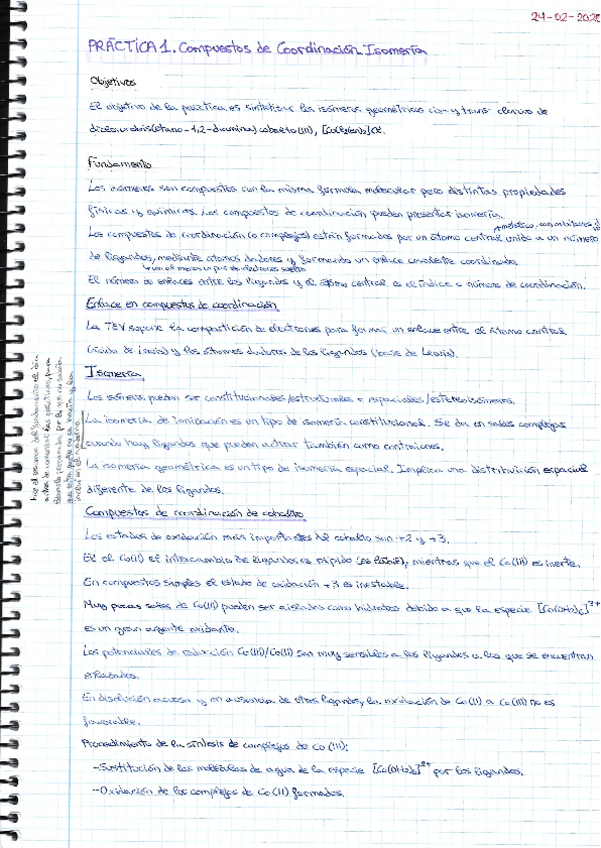 24-02-2025
PRÁCTICA 1. Compuestos de Coordinación. Isomería
Objetivos
El objetivo de la práctica es sintetizar los isómeros geométricos cis- y trans- cloruro de
diclorobis(etano-1,2-diamina)cobalto(III), [CoCl2(en)2]Cl.
Fundamento
Los isómeros son compuestos con la misma fórmula molecular pero distintas propiedades
físicas y químicas. Los compuestos de coordinación pueden presentar isomería.
metálico, con orbitales d
Los compuestos de coordinación (o complejos) están formados por un átomo central unido a un número
de ligandos, mediante átomos dadores y formando un enlace covalente coordinado.
con al menos un par de electrones
El número de enlaces entre los ligandos y el átomo central es el índice o número de coordinación.
Enlace en compuestos de coordinación
La TEV supone la compartición de electrones para formar un enlace entre el átomo central
(ácido de Lewis) y los átomos dadores de los ligandos (base de Lewis).
Isomería
Los isómeros pueden ser constitucionales/estructurales o espaciales/estereoisómeros.
La isomería de ionización es un tipo de isomería constitucional. Se da en sales complejas
cuando hay ligandos que pueden actuar también como contraiones.
La isomería geométrica es un tipo de isomería espacial. Implica una distribución espacial
diferente de los ligandos.
Compuestos de coordinación de cobalto
Los estados de oxidación más importantes del cobalto son +2 y +3.
En el Co(II) el intercambio de ligandos es rápido (es lábil), mientras que el Co(III) es inerte.
En compuestos simples el estado de oxidación +3 es inestable.
Muy pocas sales de Co(III) pueden ser aisladas como hidratos debido a que la especie [Co(OH2)6]3+
es un gran agente oxidante.
Los potenciales de reducción Co(III)/Co(II) son muy sensibles a los ligandos a los que se encuentran
enlazados.
En disolución acuosa y en ausencia de otros ligandos, la oxidación de Co(II) a Co(III) no es
favorable.
Procedimiento de la síntesis de complejos de Co(III):
-Sustitución de las moléculas de agua de la especie [Co(OH2)6]2+ por los ligandos.
-Oxidación de los complejos de Co(II) formados.